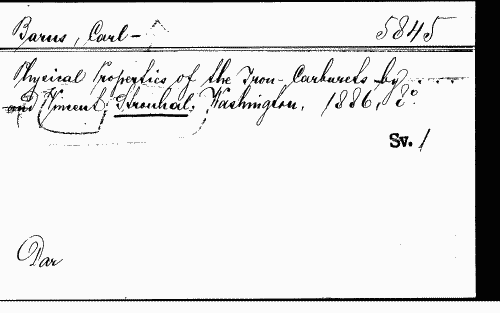 Barus, Carl - 5845
Physical Properties of the Iron-Carburets by ....
and Vincent Strouhal. Washington, 1886, 8°.
Sv. 1
Dar